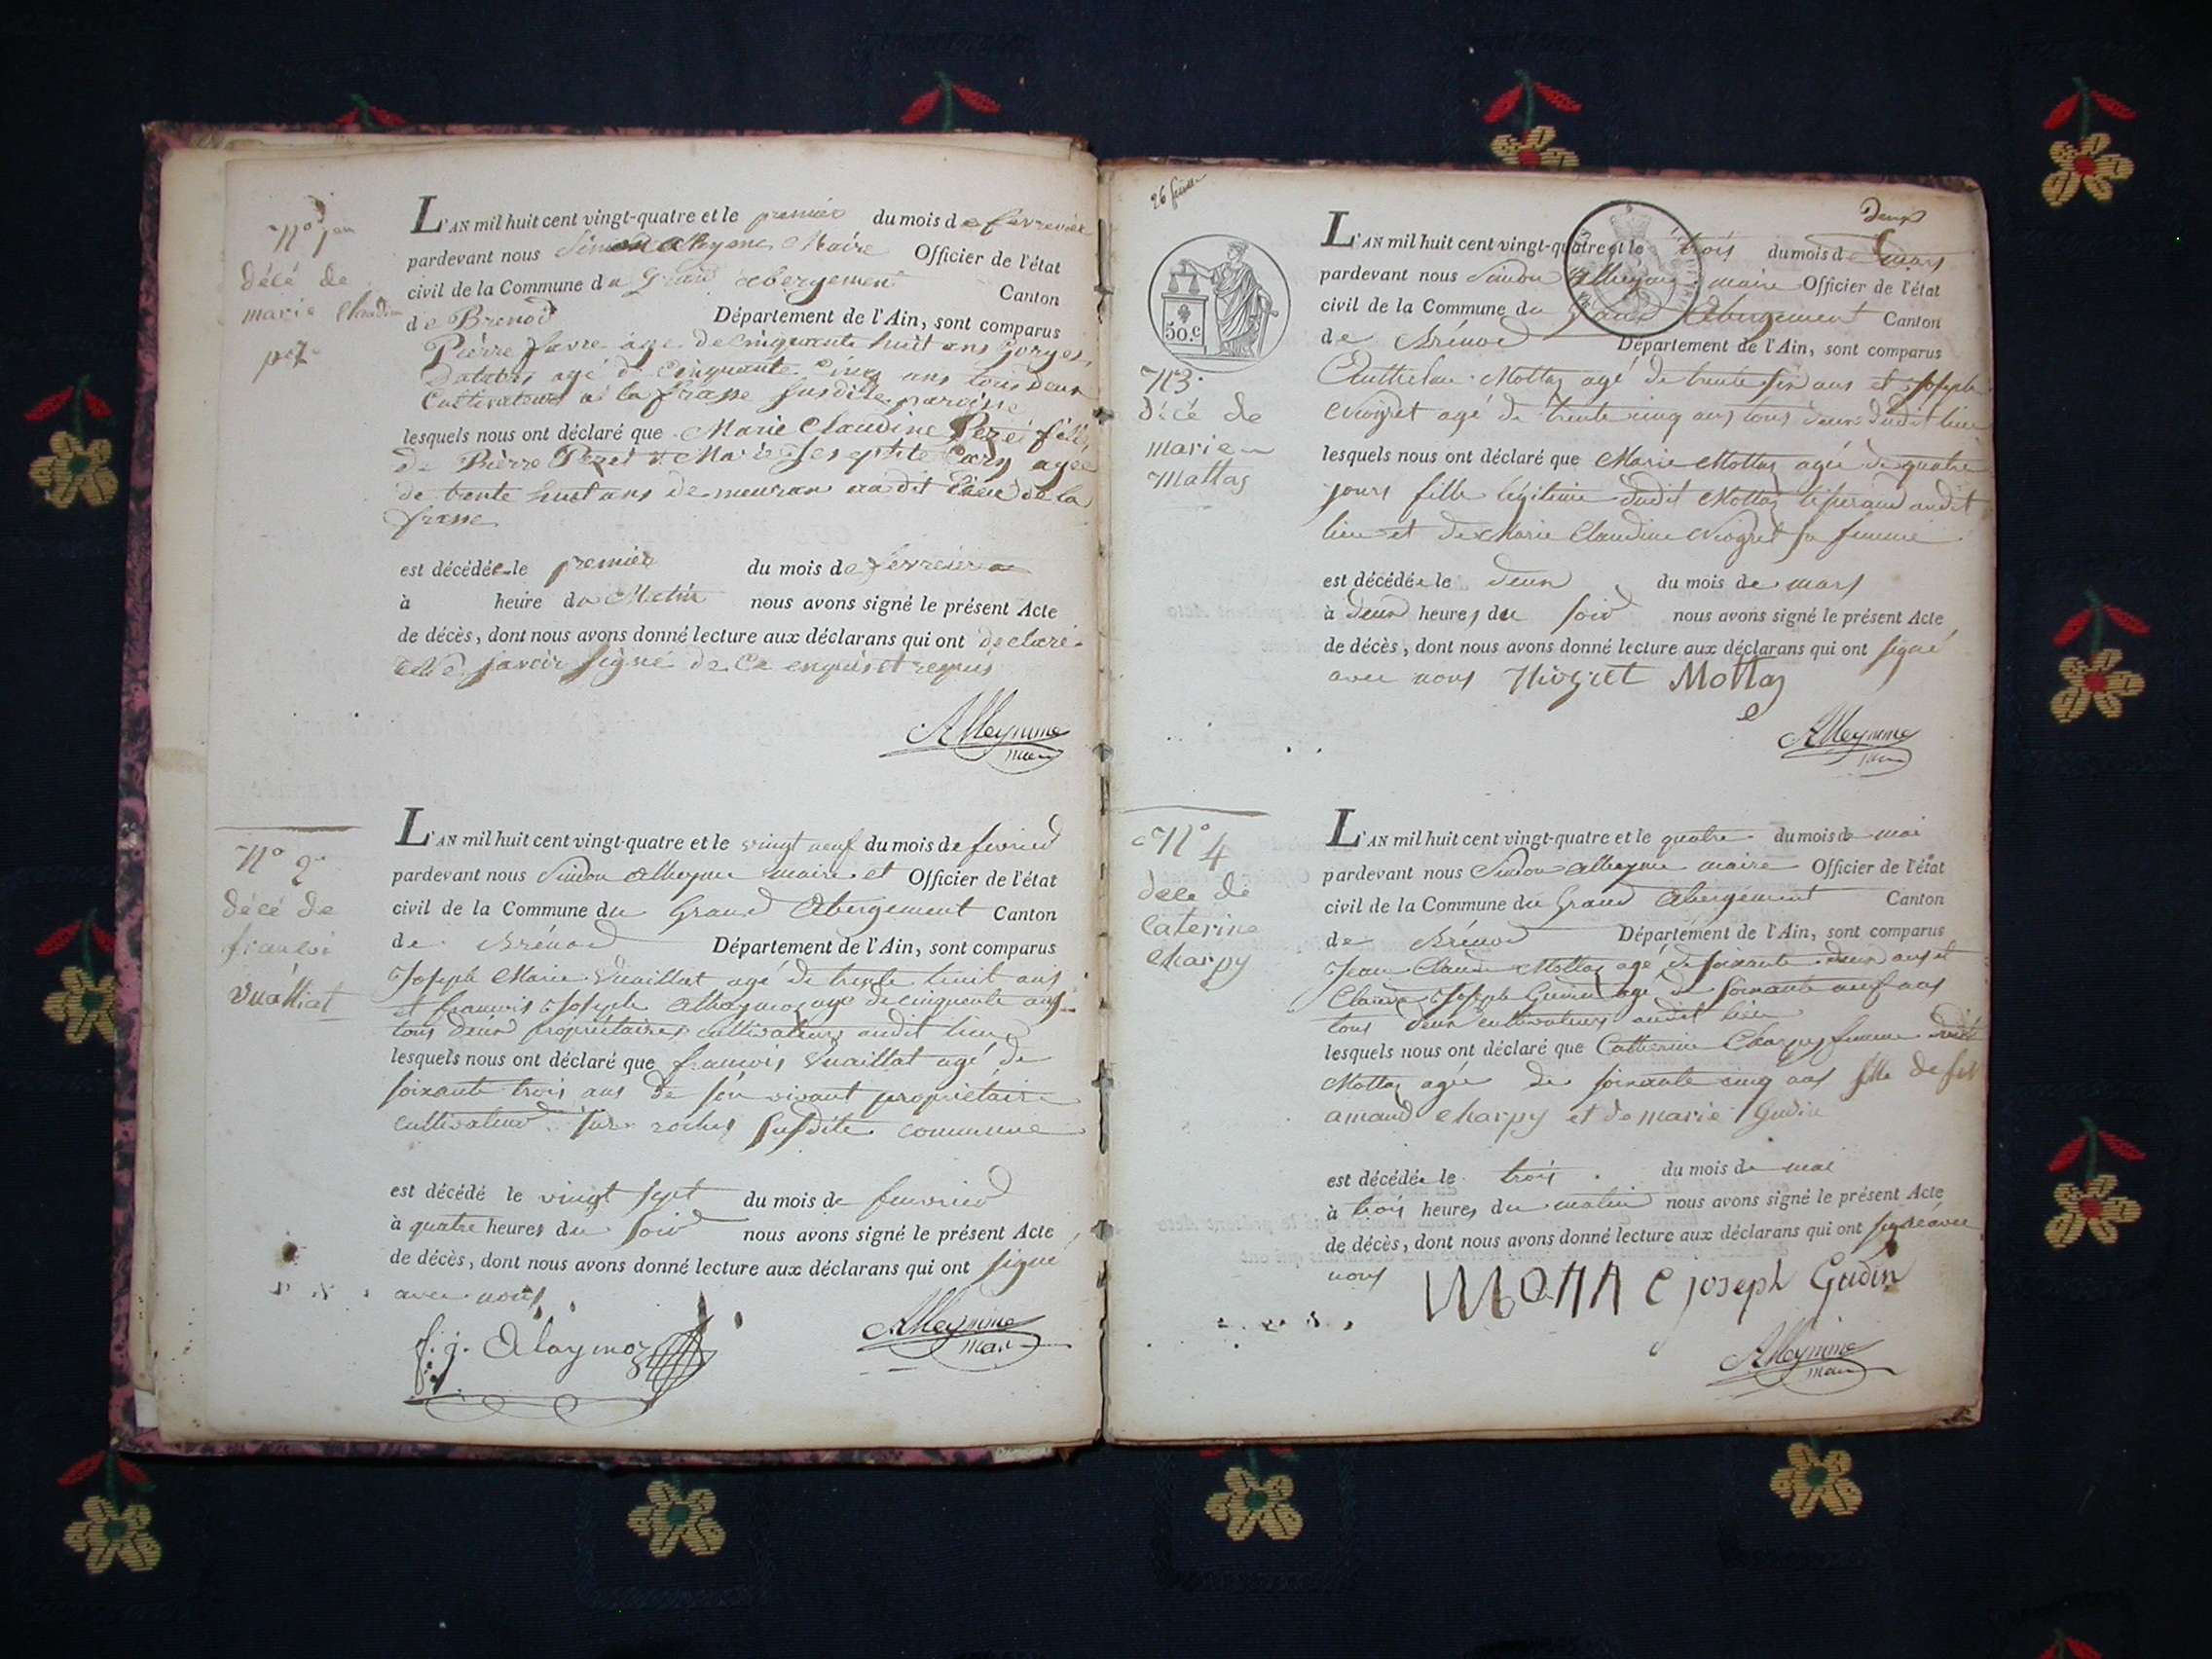 N° 1er
décé de
marie Claudine
pezé
L'AN mil huit cent vingt-quatre et le premier du mois de fevrevier
pardevant nous Simon alleyme Maire Officier de l'état
civil de la Commune du Grand abergement Canton
de Brenod Département de l'Ain, sont comparus
Pierre favre age de cinquante huit ans
agé de Cinquante Cinq ans tous deux
Cultivateurs a la frasse susdite paroisse
lesquels nous ont déclaré que Marie Claudine Pezei fille
de Pierre Pezei et Marie agée
de trente huit ans demeuran audit lieu de la
frasse
est décédée le premier du mois de
à heure du Matin nous avons signé le présent Acte
de décès, dont nous avons donné lecture aux déclarans qui ont declaré
savoir signé de ce enquis et requis
Alleymme
maire
N° 2
décé de
francoi
vualliat
L'AN mil huit cent vingt-quatre et le vingt neuf du mois de fevrier
pardevant nous Simon alleyme maire et Officier de l'état
civil de la Commune du Grand Abergement Canton
de Brénod Département de l'Ain, sont comparus
Joseph Marie Vuaillat agé de trente huit ans
et francois Joseph allaymoz agé de cinquante ans
tous deux propriétaires cultivateurs audit lieu
lesquels nous ont déclaré que francois Vuaillat agé de
soixante trois ans de son vivant propriétaire
cultivateur sur roches susdite commune
est décédé le vingt sept du mois de fevrier
à quatre heures du soir nous avons signé le présent Acte
de décès, dont nous avons donné lecture aux déclarans qui ont signé
avec nous
f. j. Alaymoz
Alleymme
maire
26 feuille
Deux
50.c
N3.
décé de
marie
Mattaz
L'AN mil huit cent vingt-quatre et le trois du mois de mars
pardevant nous Simon Alleyme maire Officier de l'état
civil de la Commune du Grand Abergement Canton
de Brénod Département de l'Ain, sont comparus
Anthelme Mottaz agé de trente six ans et Joseph
Niogret agé de trente cinq ans tous deux dudit lieu
lesquels nous ont déclaré que Marie Mottaz agée de quatre
jours fille légitime dudit Mottaz audit
lieu et de Marie Claudine Niogret sa femme
est décédée le deux du mois de mars
à deux heures du soir nous avons signé le présent Acte
de décès, dont nous avons donné lecture aux déclarans qui ont signé
avec nous Niogret Mottaz
Alleymme
maire
N° 4
dece de
Caterine
Charpy
L'AN mil huit cent vingt-quatre et le quatre du mois de mai
pardevant nous Simon alleyme maire Officier de l'état
civil de la Commune du Grand Abergement Canton
de Brénod Département de l'Ain, sont comparus
Jean Claude Mottaz agé de soixante deux ans et
Claude Joseph Gudin agé de soixante neuf ans
tous deux cultivateurs audit lieu
lesquels nous ont déclaré que Catherine Charpy femme dudit
Mottaz agée de soixante cinq ans fille de feu
amand charpy et de marie Gudin
est décédée le trois du mois de mai
à trois heures du matin nous avons signé le présent Acte
de décès, dont nous avons donné lecture aux déclarans qui ont signé avec
nous C joseph Gudin
Alleymme
maire